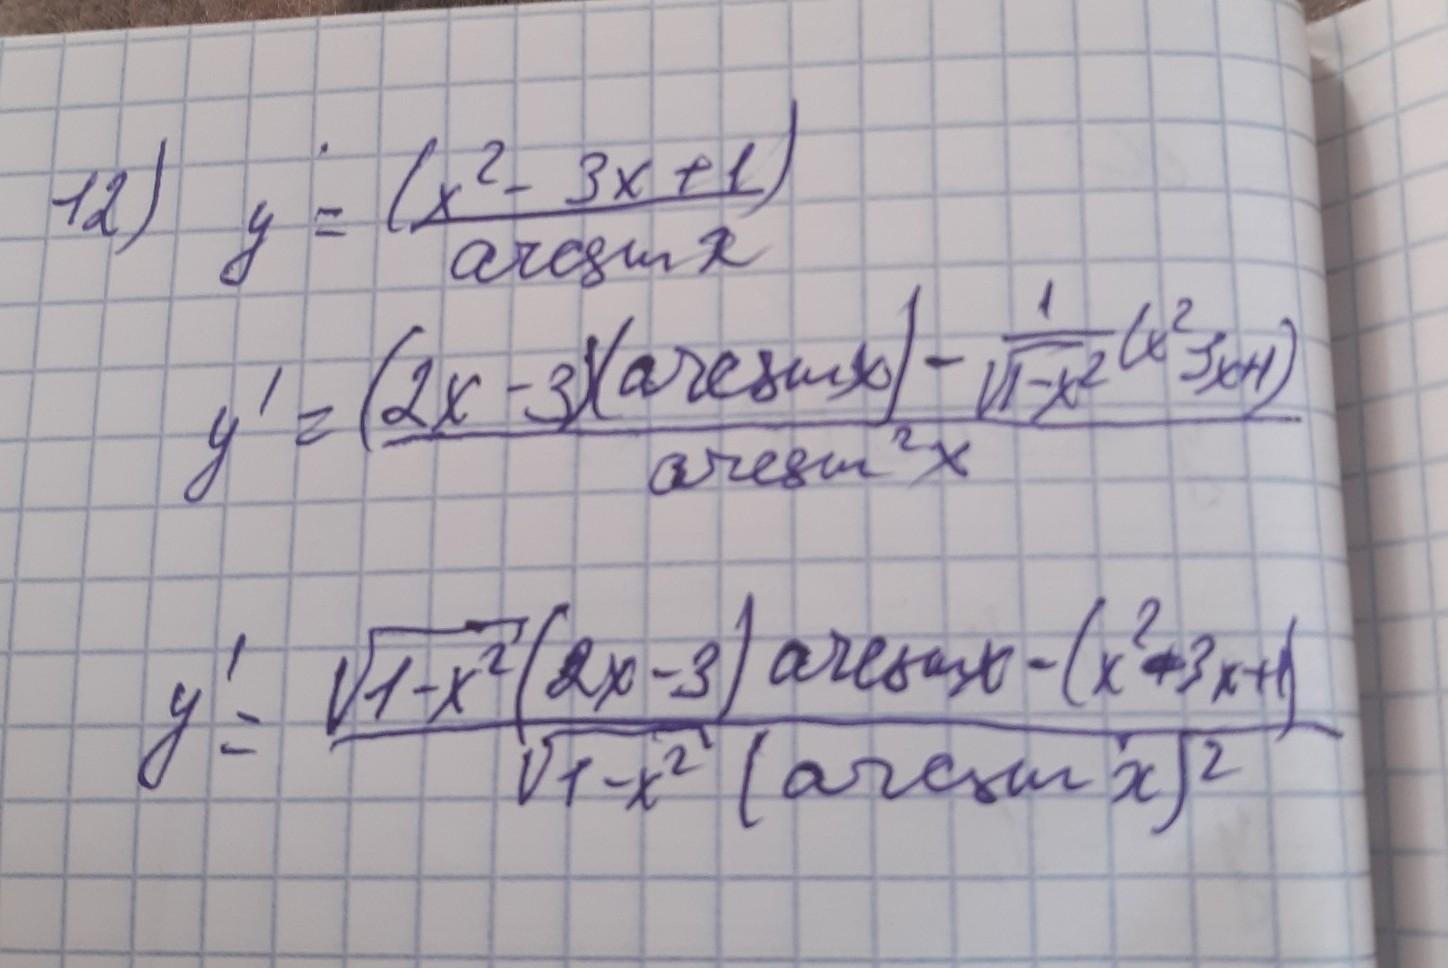 12) y = (x² - 3x + 1) / arcsin x
y' = (2x - 3)(arcsin x) - 1/√1-x² (x² 3x+1) / arcsin² x
y' = √1-x² (2x - 3) arcsin x - (x² - 3x + 1) / √1-x² (arcsin x)²